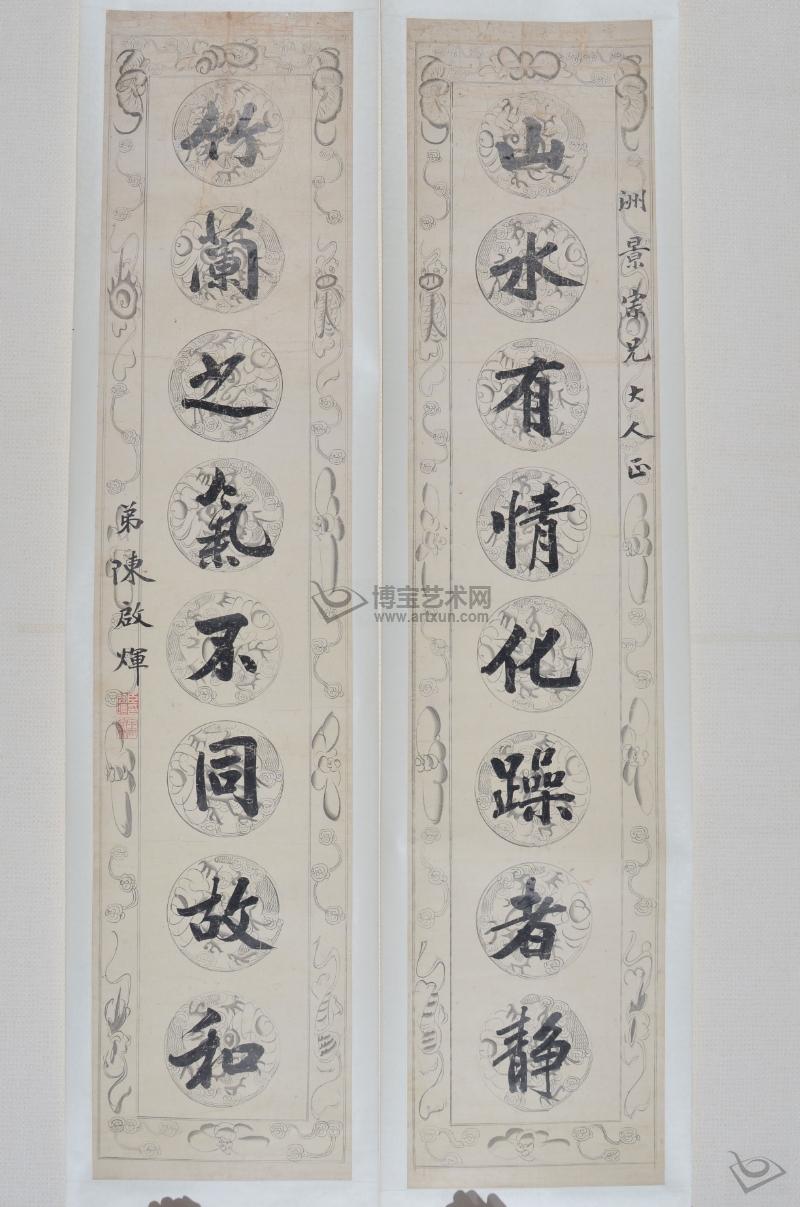 洲景宗兄大人正
山水有情化躁者静
竹蘭之氣不同故和
弟陳啟輝
博宝艺术网
www.artxun.com